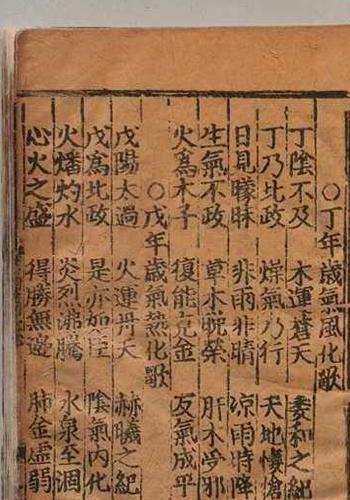 ○丁年歲氣風化歌
丁陰不及 木運蒼天 委和之紀
丁乃北政 燥氣乃行 天地悽愴
日見曚昧 非雨非晴 涼雨時降
生氣不政 草木晚榮 肝木受邪
火為木子 復能克金 氣成平
○戊年歲氣熱化歌
戊陽太過 火運丹天 赫曦之紀
戊為北政 是亦如臣 陰氣內化
火燔灼水 炎烈沸騰 水泉至涸
心火之盛 得勝無邊 肺金虛弱